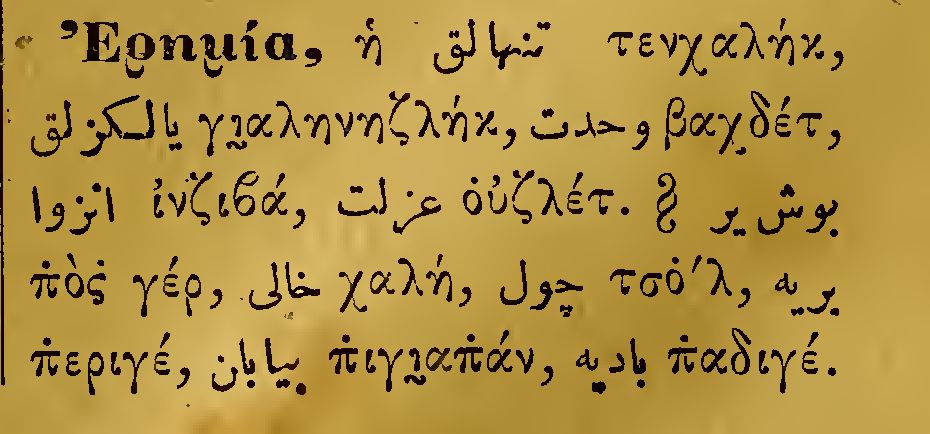 Ἐρημία, ἡ تنهالق τενχαλήκ,
يالكزلق γιαληνηζλήκ, وحدت βαχδέτ,
انزوا ἰνζιβά, عزلت οὐζλέτ. § بوش ير
πὸς γέρ, خالی χαλή, چول τσὸ'λ, بريه
περιγέ, بيابان πιγιαπάν, باديه παδιγέ.